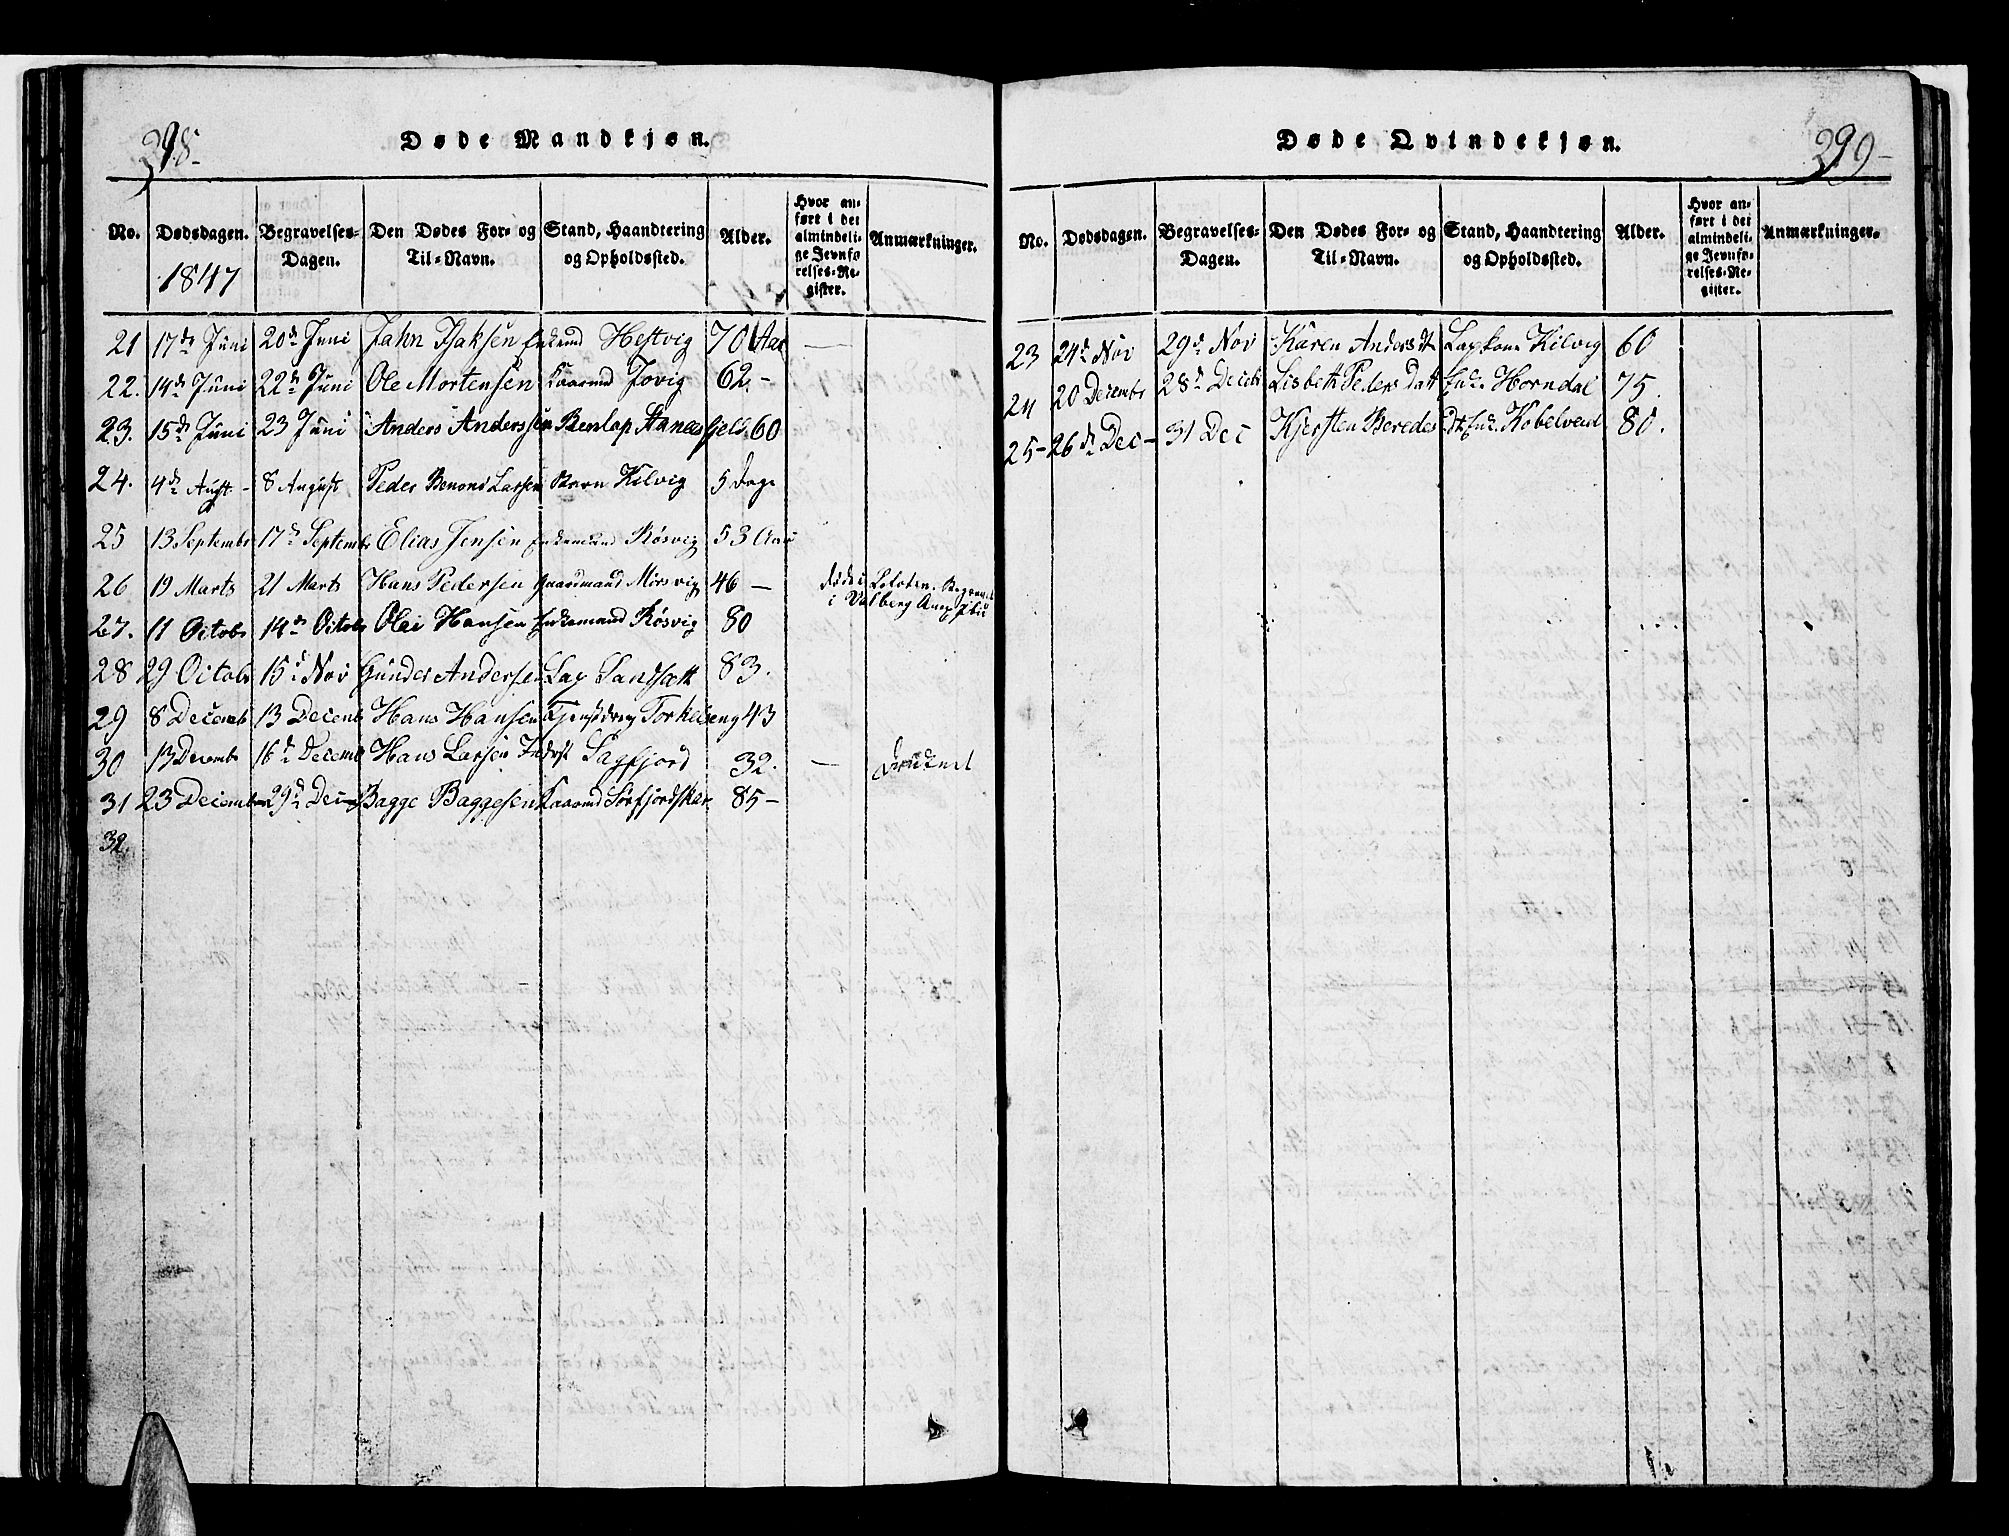 398-
Døde Mandkjøn.
No. Dødsdagen. Begravelses-Dagen. Den Dødes For- og Til-Navn. Stand, Haandtering og Opholdssted. Alder. Hvor anført i det almindelige Jevnførelses-Register. Anmærkninger.
1847
21 17de Juni 20de Juni Jahn Isaksen Enkemd Hestvig 70 Aar —
22. 14de Juni 22de Juni Ole Mortensen Kaarmd Jovig 62.-
23. 15de Juni 23 Juni Anders Anderssen Renlap Hanas fjeld 60
24. 4de Augt - 8 August Peder Benoni Larsen Barn Kilvig 5 Dage
25 13 Septembr 17de Septembr Elias Jensen Enkemand Røsvig 53 Aar
26 19 Marts 21 Marts Hans Pedersen Gaardmand Mørsvig 46 — døde i Lofoten. Begravet i Valberg
27. 11 Octobr 14de Octobr Olai Hansen Enkemand Røsvig 80
28 29 Octobr 15de Nov Gunder Andersen Lap Landsætt 83.
29 8 Decemb 13 Decemb Hans Hansen Tjenstdreng Torkelseng 43
30 13 Decembr 16de Decemb Hans Larsen Inderst Sagfjord 32. — Druknet
31 23 Decembr 29de Dec Bagge Baggesen Kaarmd Sørfjordskar 85-
32.
Døde Qvindekjøn.
399-
No. Dødsdagen. Begravelses-Dagen. Den Dødes For- og Til-Navn. Stand, Haandtering og Opholdssted. Alder. Hvor anført i det almindelige Jevnførelses-Register. Anmærkninger.
23 24de Nov 29de Nov Karen Andersdt Lapkone Kilvig 60
24 20 Decembr 28de Decbr Lisbeth Peders Datt Enke. Horndal 75.
25- 26de Dec- 31 Dec Kjersten Beredes Dt. Enke. Kobelvend 80.